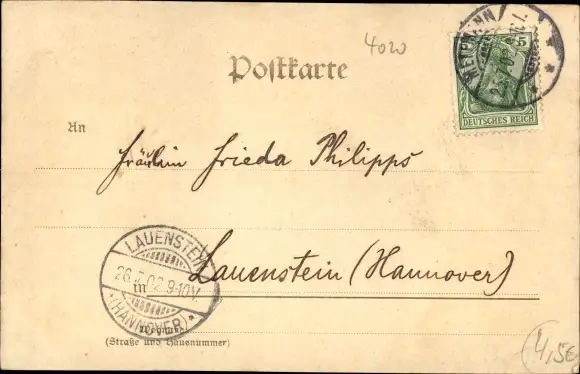 4020
Postkarte
5
DEUTSCHES REICH
An
Fräulein Frieda Philipps
LAUENSTEIN
26. 02. 9-10V.
(HANNOVER)
in Lauenstein (Hannover)
Wohnung
(Straße und Hausnummer)
4,5€